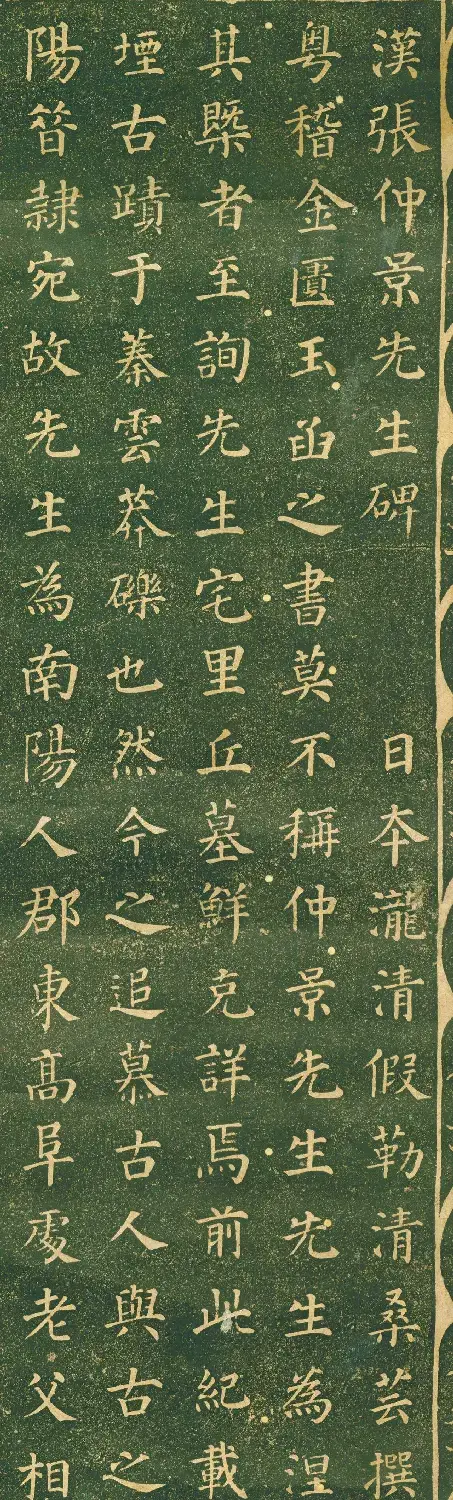 漢張仲景先生碑 日夲瀧清假勒清桑芸撰
粤稽金匱玉函之書莫不稱仲景先生先生為涅
其槩者至詢先生宅里丘墓鮮克詳焉前此紀載
堙古蹟于蓁雲莽礫也然今之追慕古人與古之
陽昔隷宛故先生為南陽人郡東髙阜處老父相